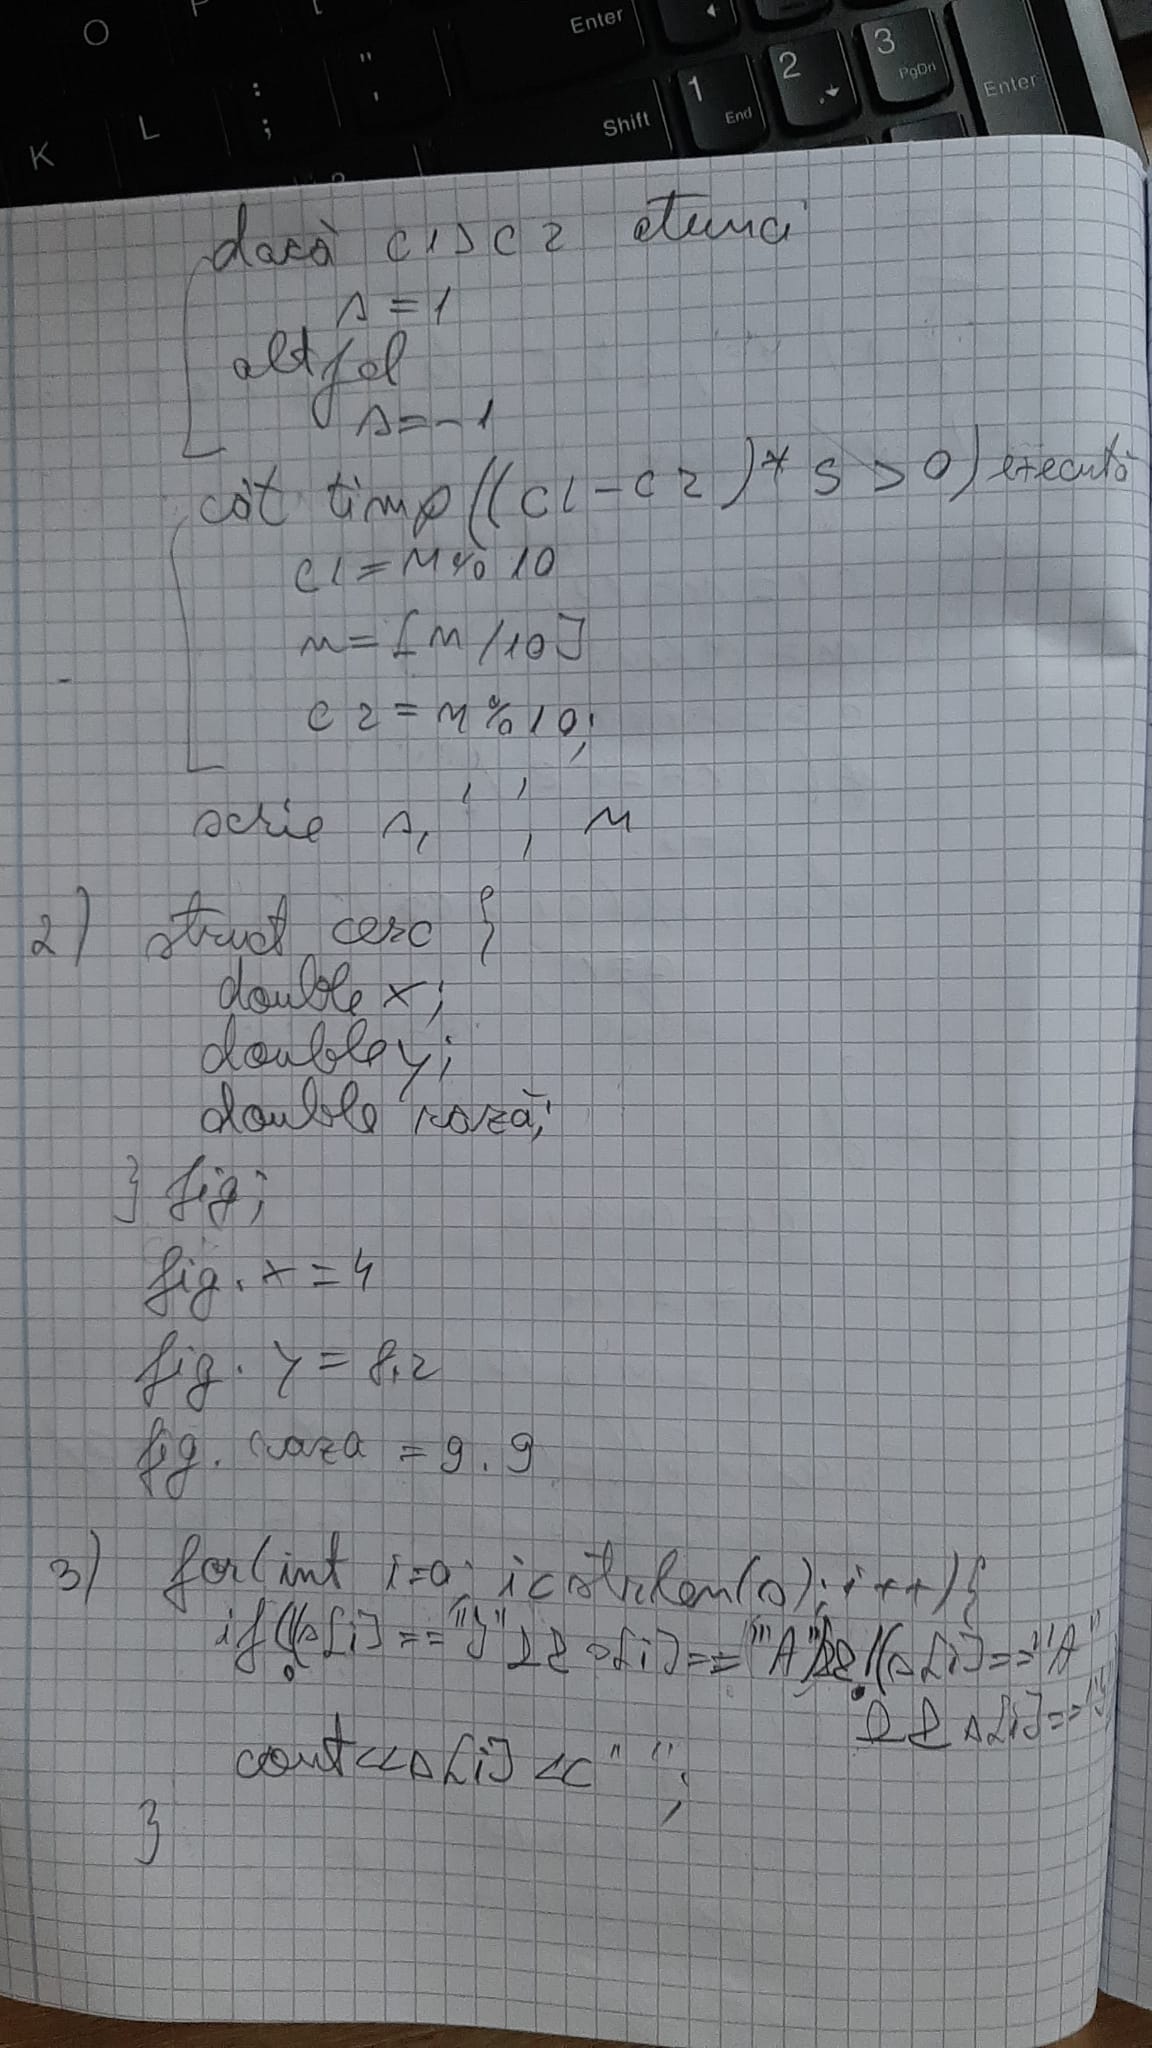 O
P
[
Enter
"
'
:
;
K
L
Shift
1
End
2
3
PgDn
Enter
dacă c1>c2 atunci
s=1
altfel
s=-1
cât timp((c1-c2)*s>0) execută
c1=n%10
n=[n/10]
c2=n%10;
scrie s, ' ', n
2) struct cerc {
double x;
double y;
double rază;
} fig;
fig.x=4
fig.y=8.2
fig.raza=9.9
3) for(int i=0; i<strlen(s); i++){
if((s[i]=="J" && s[i]=="A") ((s[i]=="A"
&& s[i]=="J"
cout<<s[i]<<" ";
}